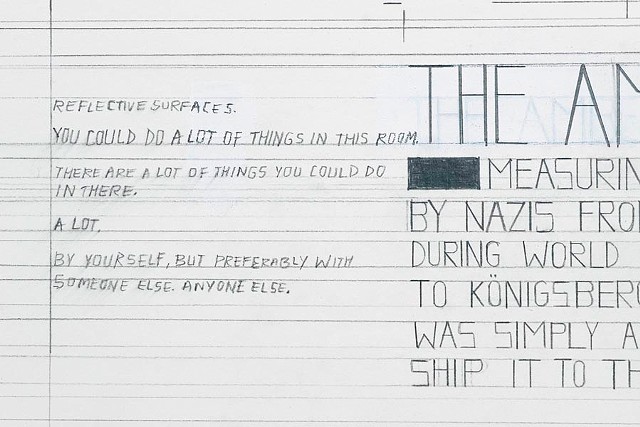 REFLECTIVE SURFACES.
YOU COULD DO A LOT OF THINGS IN THIS ROOM.
THERE ARE A LOT OF THINGS YOU COULD DO
IN THERE.
A LOT.
BY YOURSELF, BUT PREFERABLY WITH
SOMEONE ELSE. ANYONE ELSE.
THE AM
MEASURIN
BY NAZIS FRO
DURING WORLD
TO KÖNIGSBERG
WAS SIMPLY A
SHIP IT TO TH